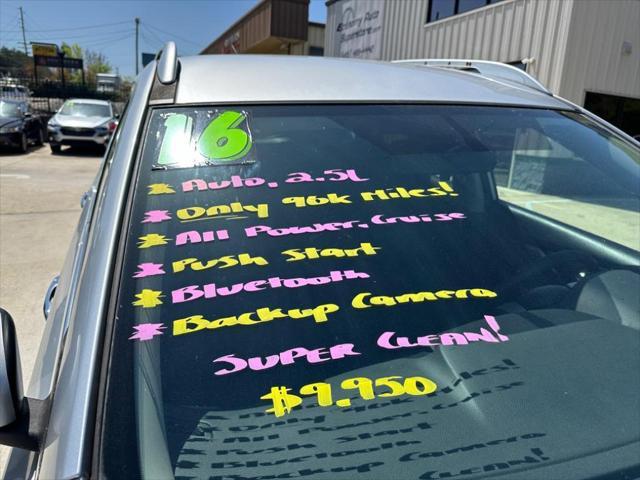 16
* Auto, 2.5L
* Only 96K Miles!
* All Power, Cruise
* Push Start
* Bluetooth
* Backup Camera
Super Clean!
$9,950